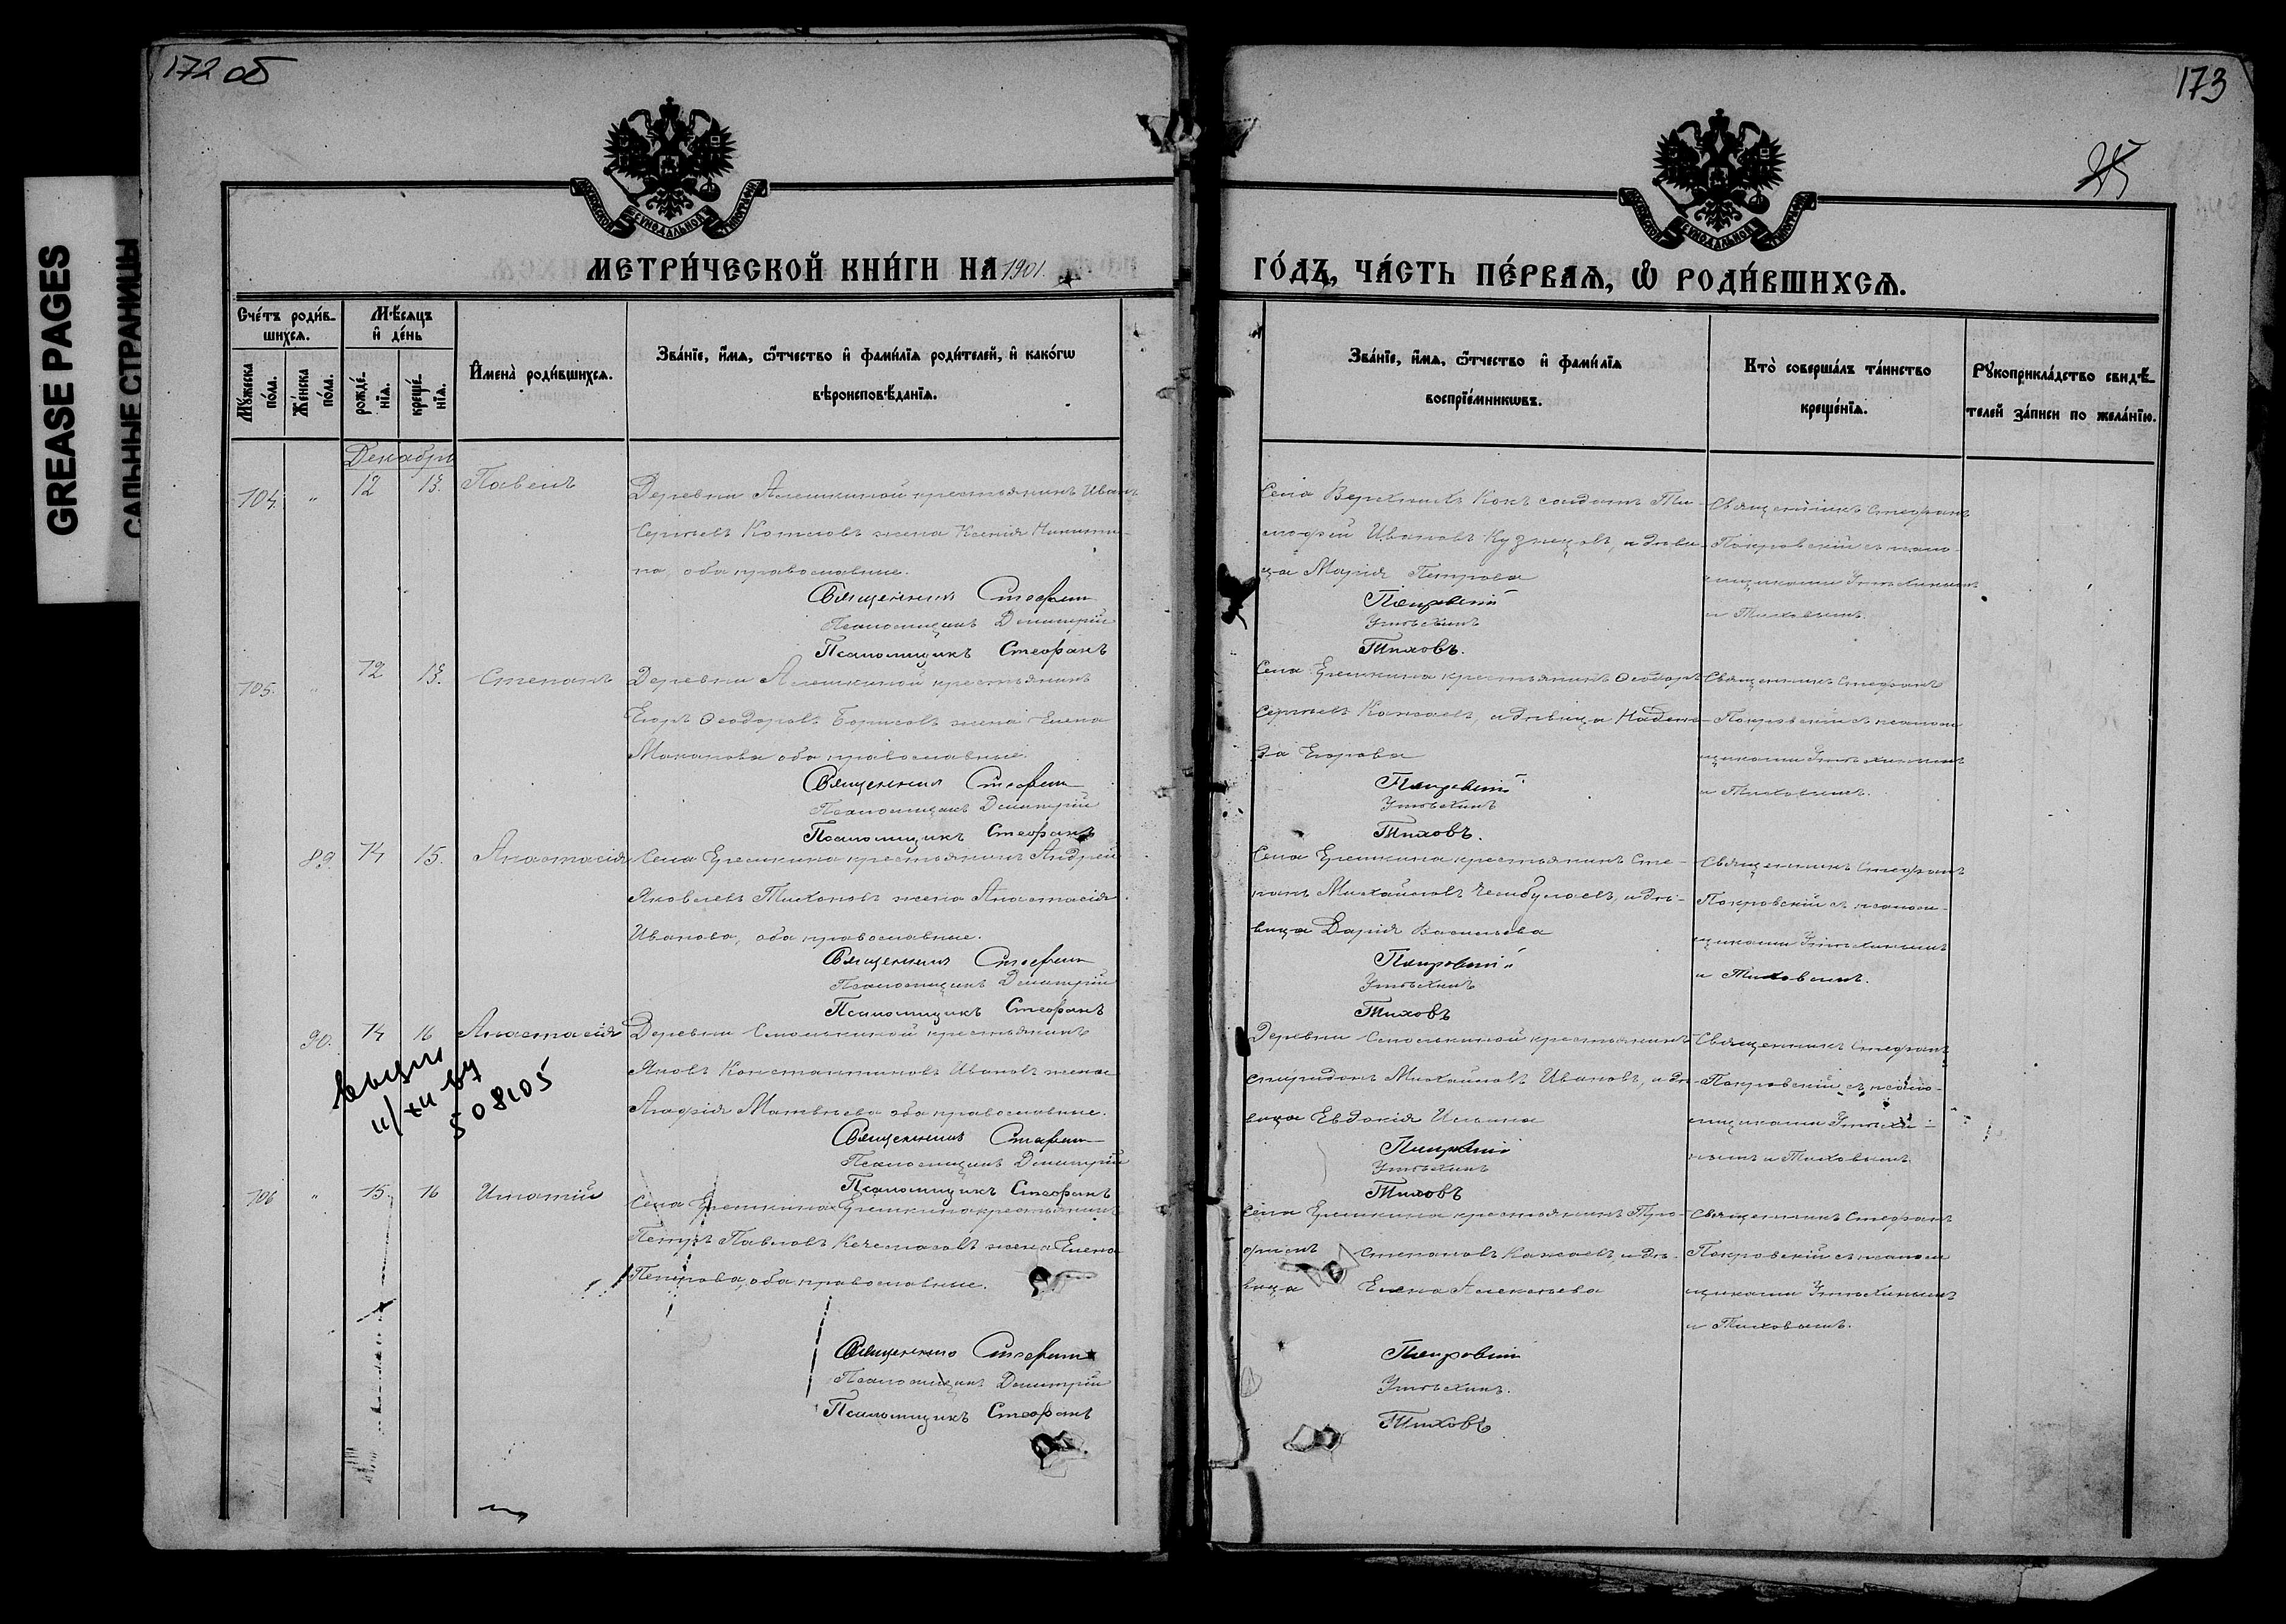 172 об
173
25
GREASE PAGES
САЛЬНЫЕ СТРАНИЦЫ
МЕТРИ́ЧЕСКОЙ КНИ́ГИ НА 1901
ГО́ДЪ, ЧА́СТЬ ПЕ́РВАЯ, Ѡ РОДИ́ВШИХСЯ.
Сче́тъ роди́в-
шихся.
Мꙋжеска
по́ла.
Же́нска
по́ла.
Мѣ́сяцъ
и҆ де́нь
рожде́-
нїѧ.
креще́-
нїѧ.
И҆мена̀ роди́вшихся.
Зва́нїе, и҆́мѧ, ѻ҆́тчество и҆ фами́лїѧ роди́телей, и҆ како́гѡ
вѣроисповѣ́данїѧ.
Зва́нїе, и҆́мѧ, ѻ҆́тчество и҆ фами́лїѧ
воспрїе́мникѡвъ.
Кто̀ соверша́лъ та́инство
креще́нїѧ.
Рꙋкоприкла́дство свидѣ́-
телей за́писи по жела́нїю.
Декабрь
104. " 12 13. Павелъ
Деревни Алешкиной крестьянинъ Иванъ
Сергѣевъ Котловъ жена Ксенія Никити-
на, оба православные.
Священникъ Стефанъ
Псаломщикъ Димитрій
Псаломщикъ Стефанъ
Села Верхнихъ Кокъ солдатъ Ти-
мофей Ивановъ Кузнецовъ, и дѣви-
ца Марія Петрова
Покровскій
Утѣхинъ
Тиховъ.
Священникъ Стефанъ
Покровскій съ псало-
мщиками Утѣхинымъ
и Тиховымъ.
105. " 12 13. Степанъ
Деревни Алешкиной крестьянинъ
Егоръ Ѳеодоровъ Борисовъ жена Елена
оба православные.
Священникъ Стефанъ
Псаломщикъ Димитрій
Псаломщикъ Стефанъ
Села Ерешкина крестьянинъ Ѳеодоръ
Сергѣевъ Кажаевъ, и дѣвица Надеж-
да Егорова
Покровскій
Утѣхинъ
Тиховъ.
Священникъ Стефанъ
Покровскій съ псалом-
щиками Утѣхинымъ
и Тиховымъ.
89 14 15. Анастасія
Села Ерешкина крестьянинъ Андрей
Яковлевъ Тихоновъ жена Анастасія
Иванова, оба православные.
Священникъ Стефанъ
Псаломщикъ Димитрій
Псаломщикъ Стефанъ
Села Ерешкина крестьянинъ Сте-
панъ Михайловъ Чембулаевъ, и дѣ-
вица Дарія Васильева
Покровскій
Утѣхинъ
Тиховъ
Священникъ Стефанъ
Покровскій съ псалом-
щиками Утѣхинымъ
и Тиховымъ.
90. 14 16 Анастасія
508105
Деревни Смолькиной крестьянинъ
Яковъ Константиновъ Ивановъ жена
Агафія Матвѣева оба православные.
Священникъ Стефанъ
Псаломщикъ Димитрій
Псаломщикъ Стефанъ
Деревни Смолькиной крестьянинъ
Спиридонъ Михайловъ Ивановъ, и дѣ-
вица Евдокія Ильина
Покровскій
Утѣхинъ
Тиховъ
Священникъ Стефанъ
Покровскій съ псало-
мщиками Утѣхи-
нымъ и Тиховымъ.
106 " 15. 16 Игнатій
Села Ерешкина Ерешкина крестьянинъ
Петръ Павловъ жена Елена
Петрова, оба православные.
Священникъ Стефанъ
Псаломщикъ Димитрій
Псаломщикъ Стефанъ
Села Ерешкина крестьянинъ Тро-
фимъ Степановъ Кажаевъ, и дѣ-
вица Елена Алексѣева
Покровскій
Утѣхинъ.
Тиховъ
Священникъ Стефанъ
Покровскій съ псалом-
щиками Утѣхинымъ
и Тиховымъ.